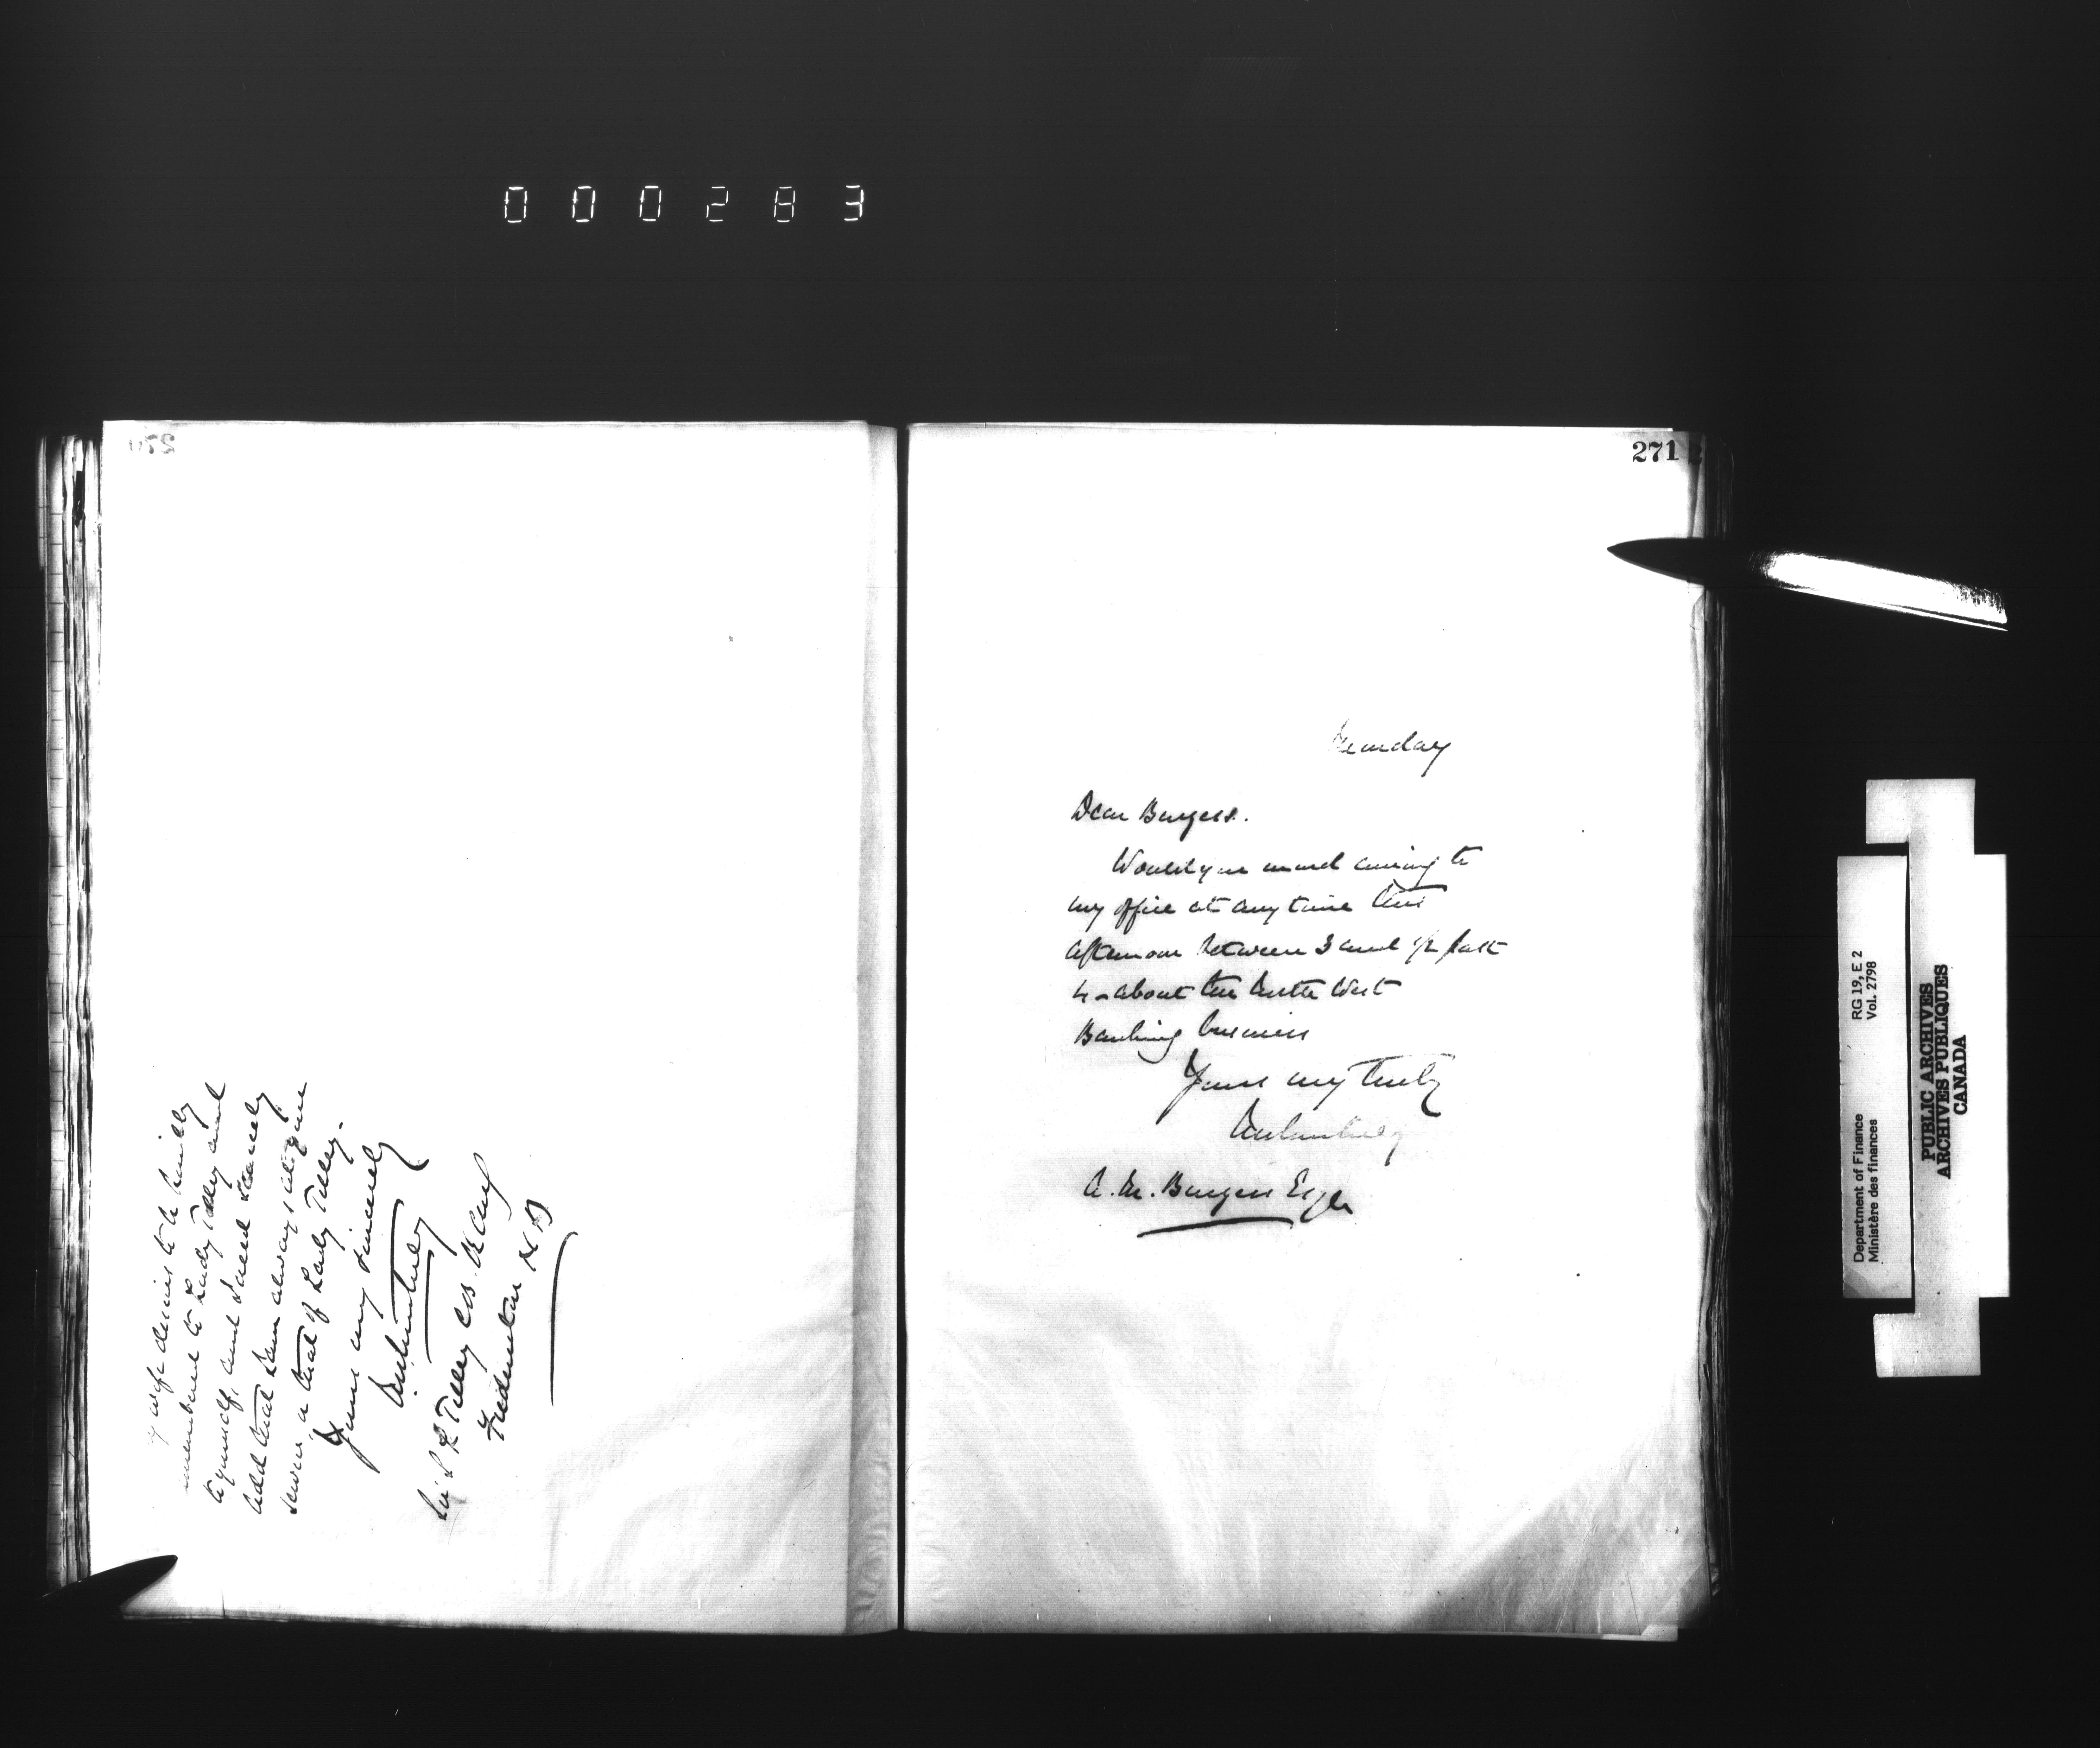 000283
270
my wife desires to be kindly
remembered to Lady Tilley and
to yourself, and I need scarcely
add that I am always at your
service or that of Lady Tilley.
Yours very sincerely
Sir S L Tilley C.B. K.C.M.G
Fredericton N B
271
Monday
Dear Burgess.
Would you mind coming to
my office at any time this
afternoon between 3 and 1/2 past
4 - about the North West
Banking business
Yours very truly
A. M. Burgess Esqre
RG 19, E 2
Vol. 2798
Department of Finance
Ministère des finances
PUBLIC ARCHIVES
ARCHIVES PUBLIQUES
CANADA